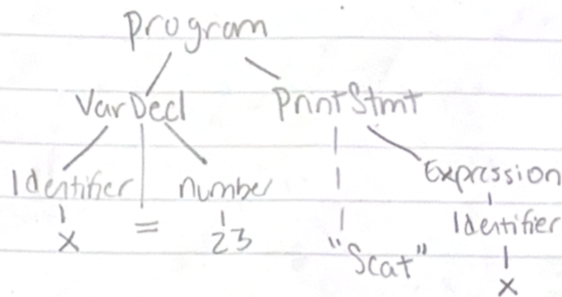 Program
VarDecl PrintStmt
Identifier = number Expression
x 23 "Scat" Identifier
x